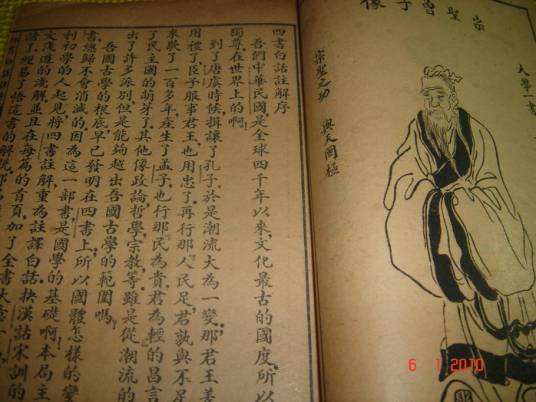 宗聖曾子像
大學一書
宗聖之功
與天罔極
四書白話註解序
吾們中華民國是全球四千年以來，文化最古的國度，所以
獨尊在世界上的啊。
到了唐虞時候，揖讓了，孔子，於是潮流大為一變，那君王善
用禮了，臣子服事君王，也用忠了，再行那人民足，君孰與不足
來歇了一百多年，產生了孟子，也行那民為貴，君為輕的昌言
了民主國的萌芽了，其他像政論，哲學，宗教，等，雖是從潮流的
出了許多派別，但是能夠越出吾國古學的範圍嗎。
吾國古學的根底，早已發明在四書上，所以國體怎樣的變
書，總歸不會消滅的，因為這一部書，是國學的基礎啊，本局主
利初學的人起見，將四書註解，重為註譯白話，抉漢詁宋訓的
文淺近的淺解，並且在每篇的首頁，加了全書大意
了，經易了悟這書的解說
6 1 2010